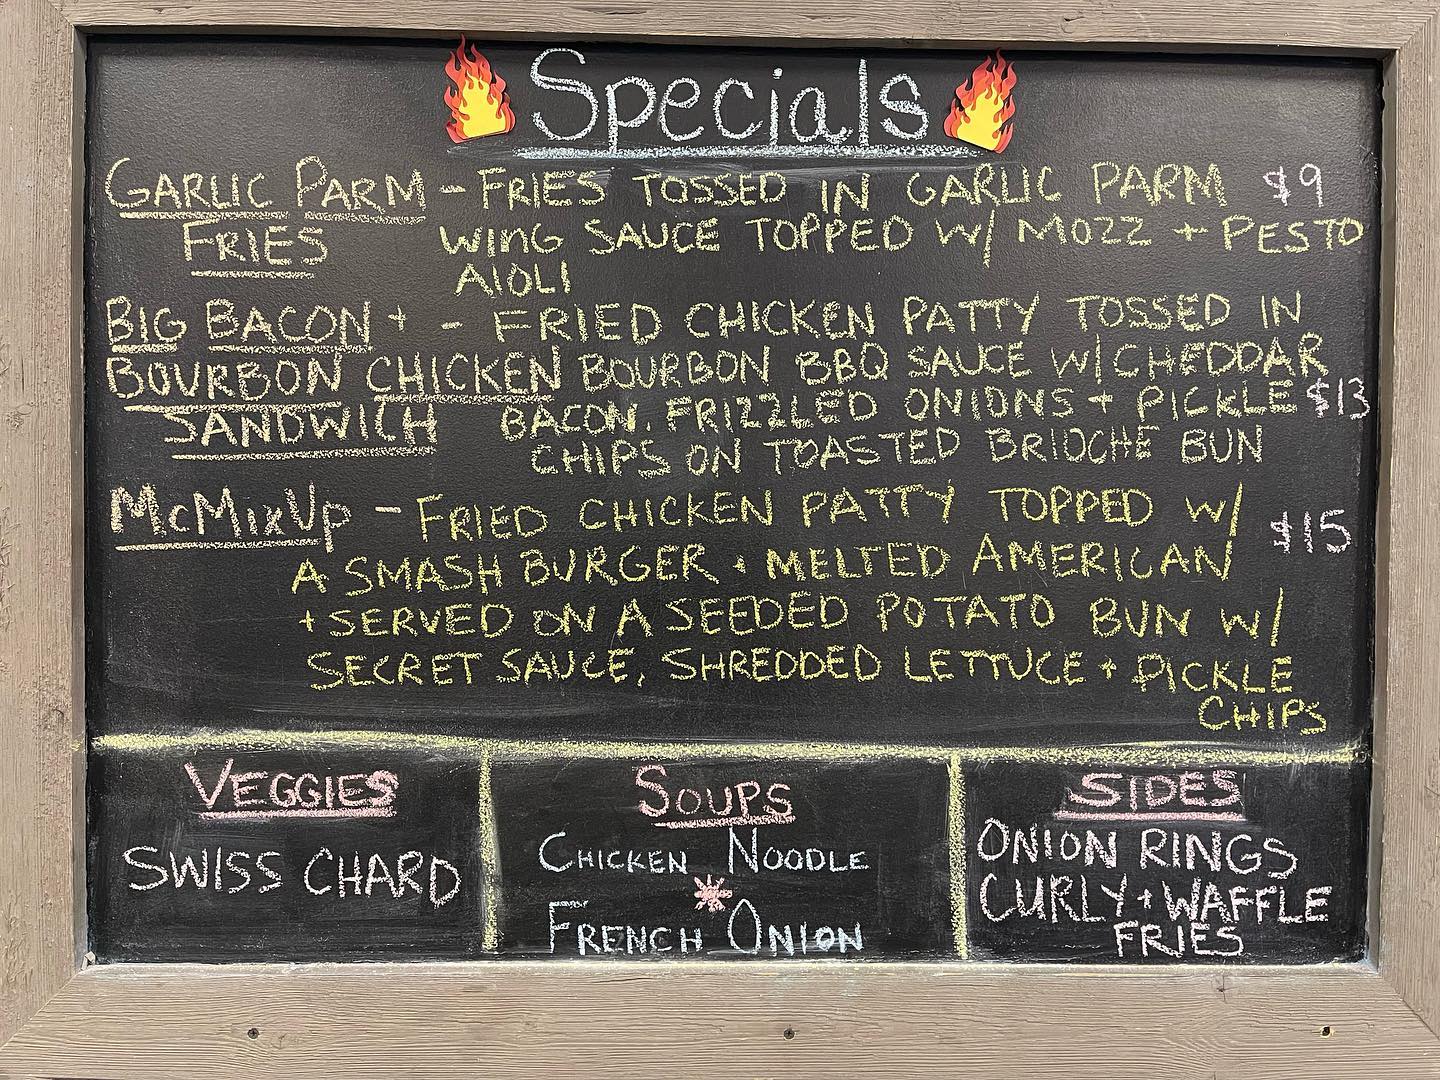 Specials
GARLIC PARM - FRIES TOSSED IN GARLIC PARM $9
FRIES WING SAUCE TOPPED W/ MOZZ + PESTO
AIOLI
BIG BACON + - FRIED CHICKEN PATTY TOSSED IN
BOURBON CHICKEN BOURBON BBQ SAUCE W/ CHEDDAR
SANDWICH BACON. FRIZZLED ONIONS + PICKLE $13
CHIPS ON TOASTED BRIOCHE BUN
McMixUp - FRIED CHICKEN PATTY TOPPED W/ $15
A SMASH BURGER + MELTED AMERICAN
+ SERVED ON A SEEDED POTATO BUN W/
SECRET SAUCE, SHREDDED LETTUCE + PICKLE
CHIPS
VEGGIES
SWISS CHARD
SOUPS
CHICKEN NOODLE
FRENCH ONION
SIDES
ONION RINGS
CURLY + WAFFLE
FRIES